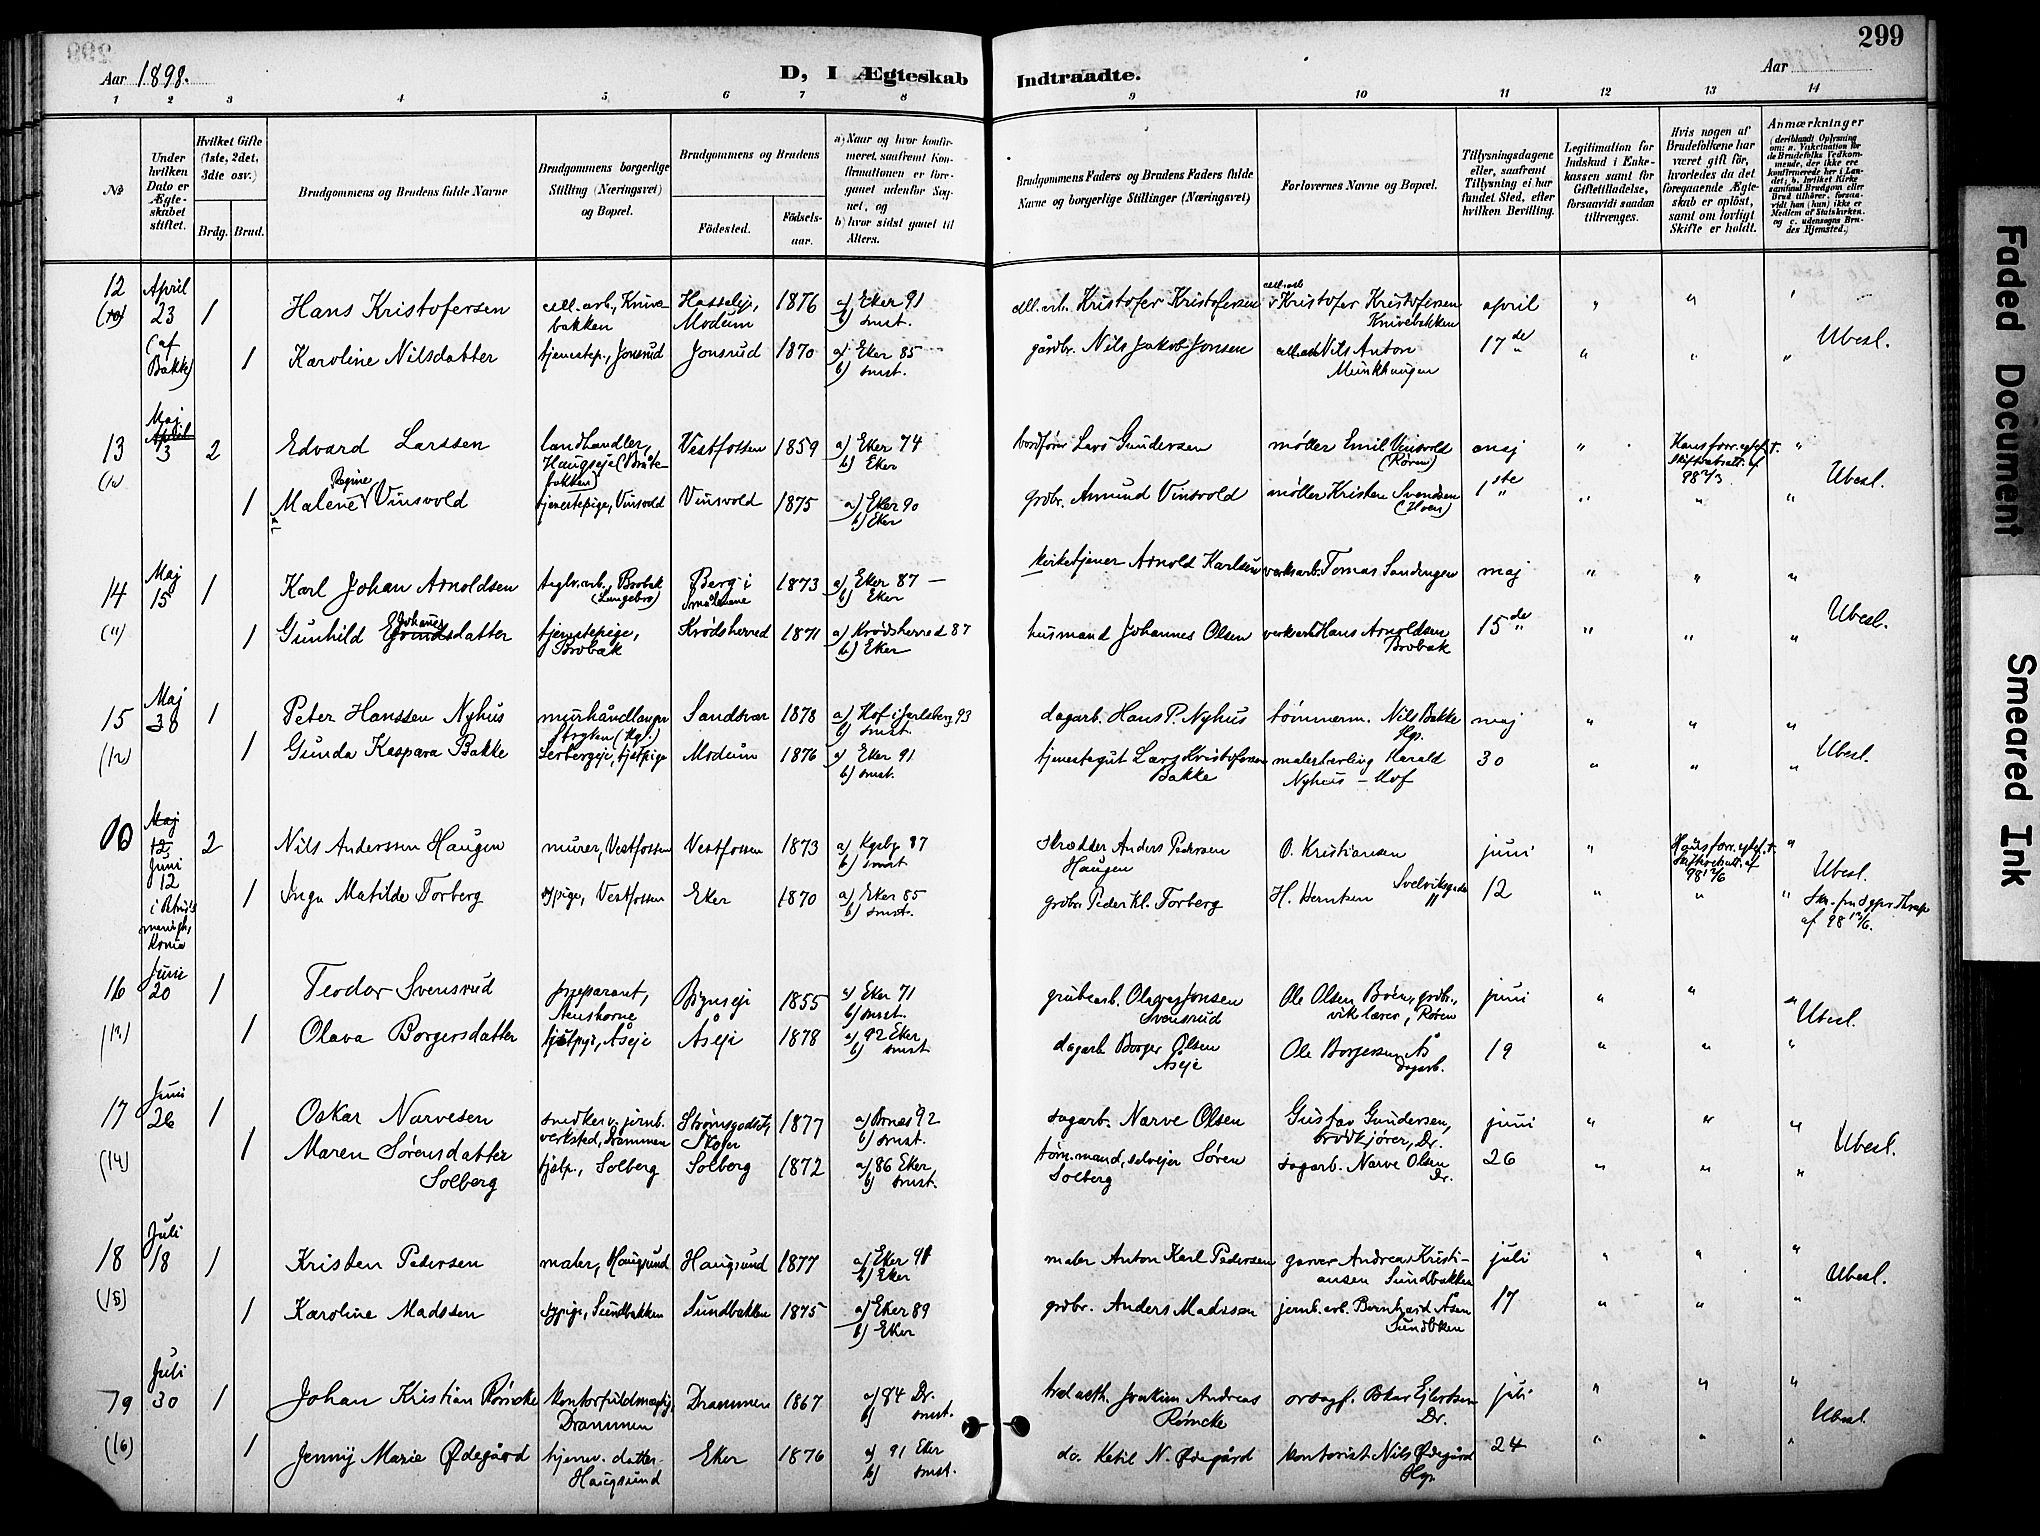 299
Aar 1898.
D, I Ægteskab Indtraadte.
Aar
1 2 3 4 5 6 7 8 9 10 11 12 13 14
No
Under hvilken Dato er Ægteskabet stiftet.
Hvilket Gifte (1ste, 2det, 3die osv.)
Brdg. Brud.
Brudgommens og Brudens fulde Navne
Brudgommens borgerlige Stilling (Næringsvei) og Bopæl.
Brudgommens og Brudens
Fødested.
Fødselsaar.
a) Naar og hvor konfirmeret, saafremt Konfirmationen er foregaaet udenfor Sognet, og
b) hvor sidst gaaet til Alters.
Brudgommens Faders og Brudens Faders fulde Navne og borgerlige Stillinger (Næringsvei)
Forlovernes Navne og Bopæl.
Tillysningsdagene eller, saafremt Tillysning ei har fundet Sted, efter hvilken Bevilling.
Legitimation for Indskud i Enkekassen samt for Giftetilladelse, forsaavidt saadan tiltrænges.
Hvis nogen af Brudefolkene har været gift før, hvorledes da det foregaaende Ægteskab er opløst, samt om lovligt Skifte er holdt.
Anmærkninger
12 April 23 1 Hans Kristofersen cell.arb., Knivebakken Hasseleje, Modum 1876 a) Eker 91 b) smst. cell.arb. Kristofer Kristofersen cell.arb. Kristofer Kristofersen Knivebakken april " " "
(10) (af Bakke) 1 Karoline Nilsdatter tjenestep., Jonsrud Jonsrud 1870 a) Eker 85 b) smst. gårdbr. Nils Jakob Jonsen cell.arb Nils Anton Munkhaugen 17de " " " Ubesl.
13 Maj April 3 2 Edvard Larssen landhandler, Haugseje (Bråtebakken) Vestfossen 1859 a) Eker 74 b) Eker Lars Gundersen møller Emil Vinsvold (Røren) maj " Hans forr. egtef. †. 98 "
1 Malene Regine Vinsvold tjenestepige, Vinsvold Vinsvold 1875 a) Eker 90 b) Eker grdbr. Amund Vinsvold møller Kristen Svendsen (Hoen) 1ste " " " Ubesl.
14 Maj 15 1 Karl Johan Arnoldsen teglv.arb., Brobæk (Langebro) Berg i Smålenene 1873 a) Eker 87 b) Eker kirketjener Arnold Karlsen verksarb. Tomas Sandengen maj " " "
(11) 1 Gunhild Johannesdatter tjenestepige, Brobæk Krødsherred 1871 a) Krødsherred 87 b) Eker husmand Johannes Olsen verksarb Hans Arnoldsen Brobæk 15de " " " Ubesl.
15 Maj 30 1 Peter Hanssen Nyhus murhåndlanger Stryken (Hg.) Sandsvær 1878 a) Hof i Jarlsberg 93 b) smst. dagarb. Hans P. Nyhus tømmerm. Nils Bakke Hg. maj " " "
(12) 1 Gunda Kaspara Bakke Lerbergeje, tjpige Modum 1876 a) Eker 91 b) smst. tjenestegut Lars Kristofersen Bakke malerlærling Harald Nyhus – Hof 30 " " " Ubesl.
0 Maj 12 Juni 12 2 Nils Anderssen Haugen murer, Vestfossen Vestfossen 1873 a) Kgsbg 87 b) smst. skrædder Anders Pedersen Haugen O. Kristiansen juni " Hans forr. egtef. †. af 98 "
1 Inga Matilde Torberg sypige, Vestfossen Eker 1870 a) Eker 85 b) smst. grdbr. Peder Kl. Torberg H. Berntsen Svelviksgade 12 " " " Ubesl.
16 Juni 20 1 Teodor Svensrud præparant, Bignseje 1855 a) Eker 71 b) smst. grubearb. Olaves Jonsen Svensrud Ole Olsen Boen, grdbr., viklærer, Røren juni " " "
(13) 1 Olava Borgersdatter tjpige, Åseje Åseje 1878 a) 92 Eker b) smst. dagarb. Borger Olsen Åseje Ole Borgersen Ås dagarb. 19 " " " Ubesl.
17 Juni 26 1 Oskar Narvesen snedker v. jernb. verksted, Drammen Strømsgodset, Skoger 1877 a) Brnæs 92 b) smst. sagarb. Narve Olsen Gustav Gundersen, brødkjører, Dr. juni " " "
(14) 1 Maren Sørensdatter Solberg tjp., Solberg Solberg 1872 a) 86 Eker, b) smst. tøm.mand, selvejer Søren Solberg sagarb. Narve Olsen Dr. 26 " " " Ubesl.
18 Juli 18 1 Kristen Pedersen maler, Haugsund Haugsund 1877 a) Eker 91 b) Eker maler Anton Karl Pedersen garver Andreas Kristiansen Sundbakken juli " " "
(15) 1 Karoline Madssen sypige, Sundbakken Sundbakken 1875 a) Eker 89 b) Eker grdbr. Anders Madssen jernb.arb. Bernhard Åsen Sundbken 17 " " " Ubesl.
19 Juli 30 1 Johan Kristian Rømcke kontorfuldmægtig, Drammen Drammen 1867 a) 84 Dr. b) smst. Joakim Andreas Rømcke Oskar Ejlertsen Dr. juli " " "
(16) 1 Jenny Marie Ødegård hjemv. datter Haugsund Eker 1876 a) 91 Eker b) smst. do. Ketil N. Ødegård kontorist Nils Ødegård Hg. 24 " " " Ubesl.
Faded Document
Smeared Ink